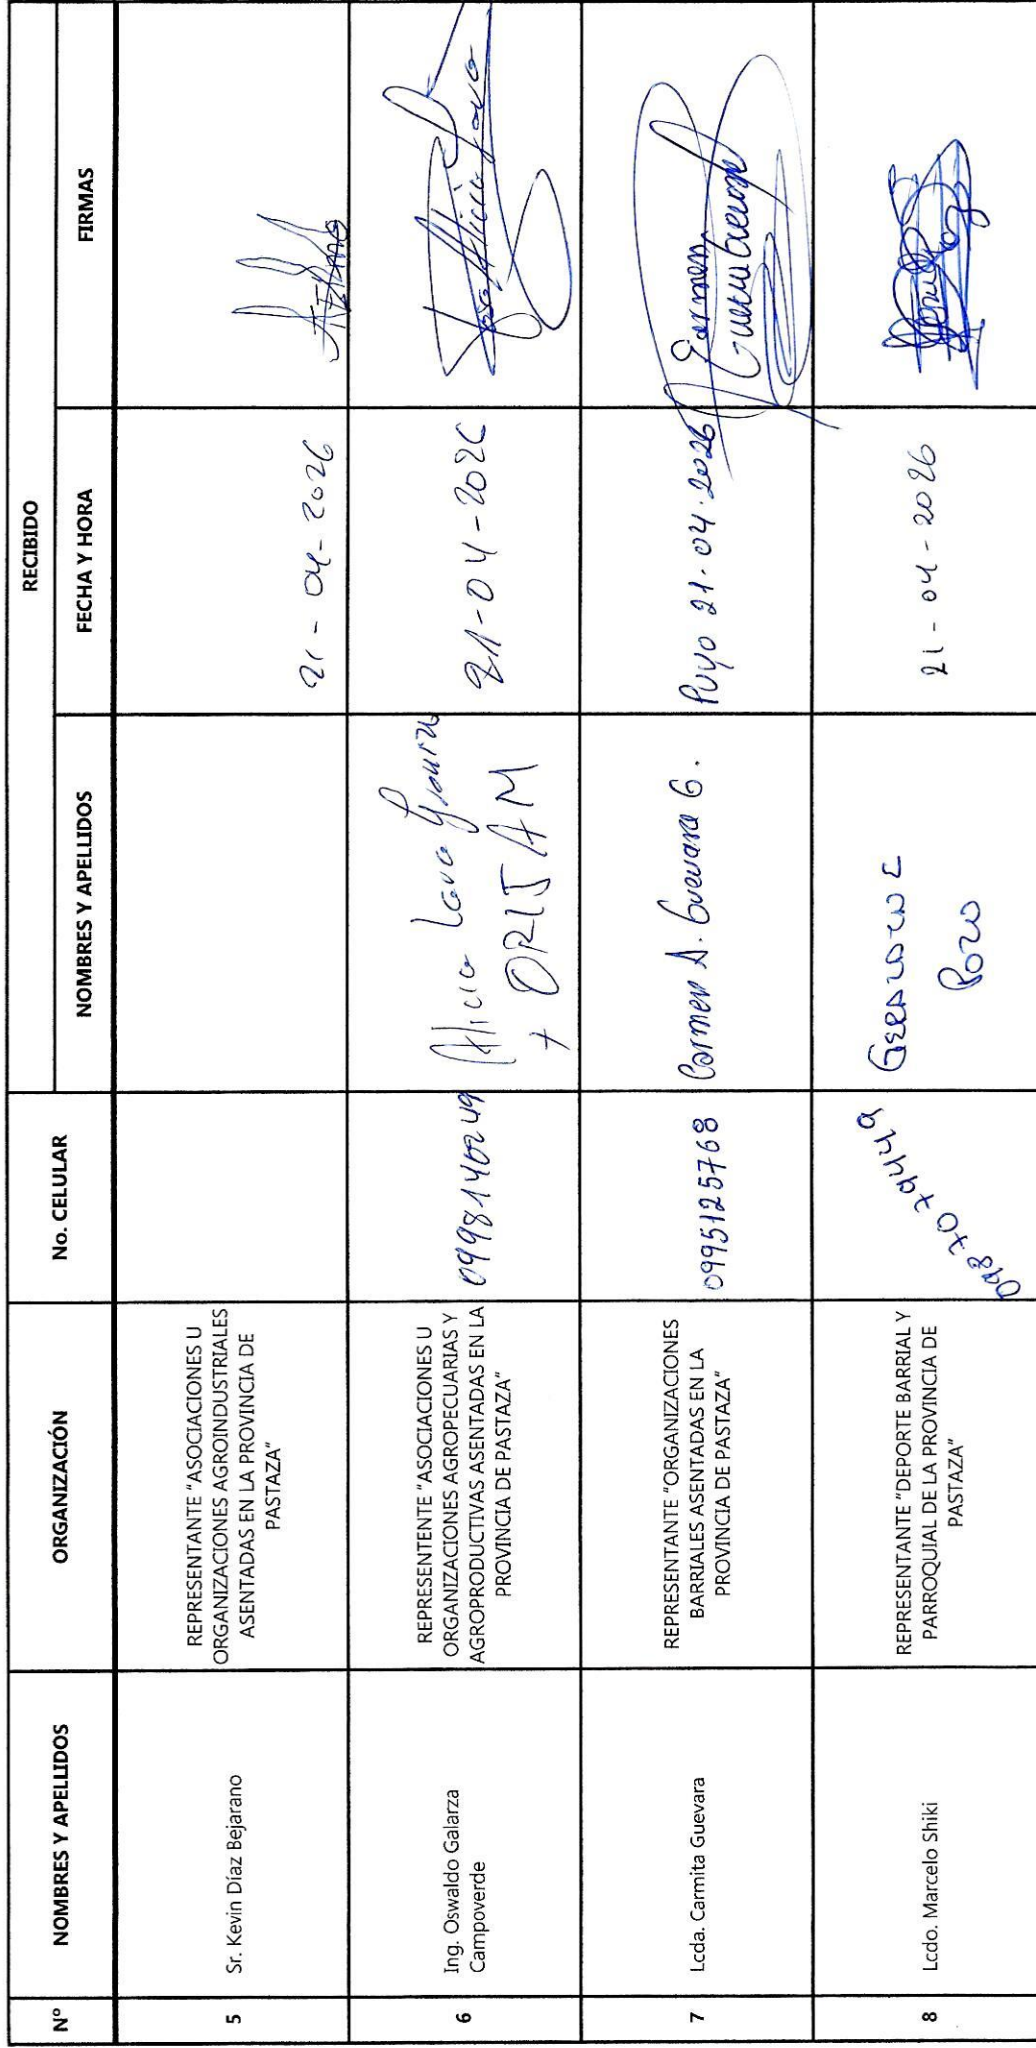 RECIBIDO
Nº NOMBRES Y APELLIDOS ORGANIZACIÓN No. CELULAR NOMBRES Y APELLIDOS FECHA Y HORA FIRMAS
5
Sr. Kevin Díaz Bejarano
REPRESENTANTE "ASOCIACIONES U
ORGANIZACIONES AGROINDUSTRIALES
ASENTADAS EN LA PROVINCIA DE
PASTAZA"
21 - 04 - 2026
6
Ing. Oswaldo Galarza
Campoverde
REPRESENTENTE "ASOCIACIONES U
ORGANIZACIONES AGROPECUARIAS Y
AGROPRODUCTIVAS ASENTADAS EN LA
PROVINCIA DE PASTAZA"
0998140249
Alicia
21-04-2026
7
Lcda. Carmita Guevara
REPRESENTANTE "ORGANIZACIONES
BARRIALES ASENTADAS EN LA
PROVINCIA DE PASTAZA"
0995125768
Carmen A. Guevara G.
Puyo 21.04.2026
Carmen
8
Lcdo. Marcelo Shiki
REPRESENTANTE "DEPORTE BARRIAL Y
PARROQUIAL DE LA PROVINCIA DE
PASTAZA"
Pozo
21 - 04 - 2026